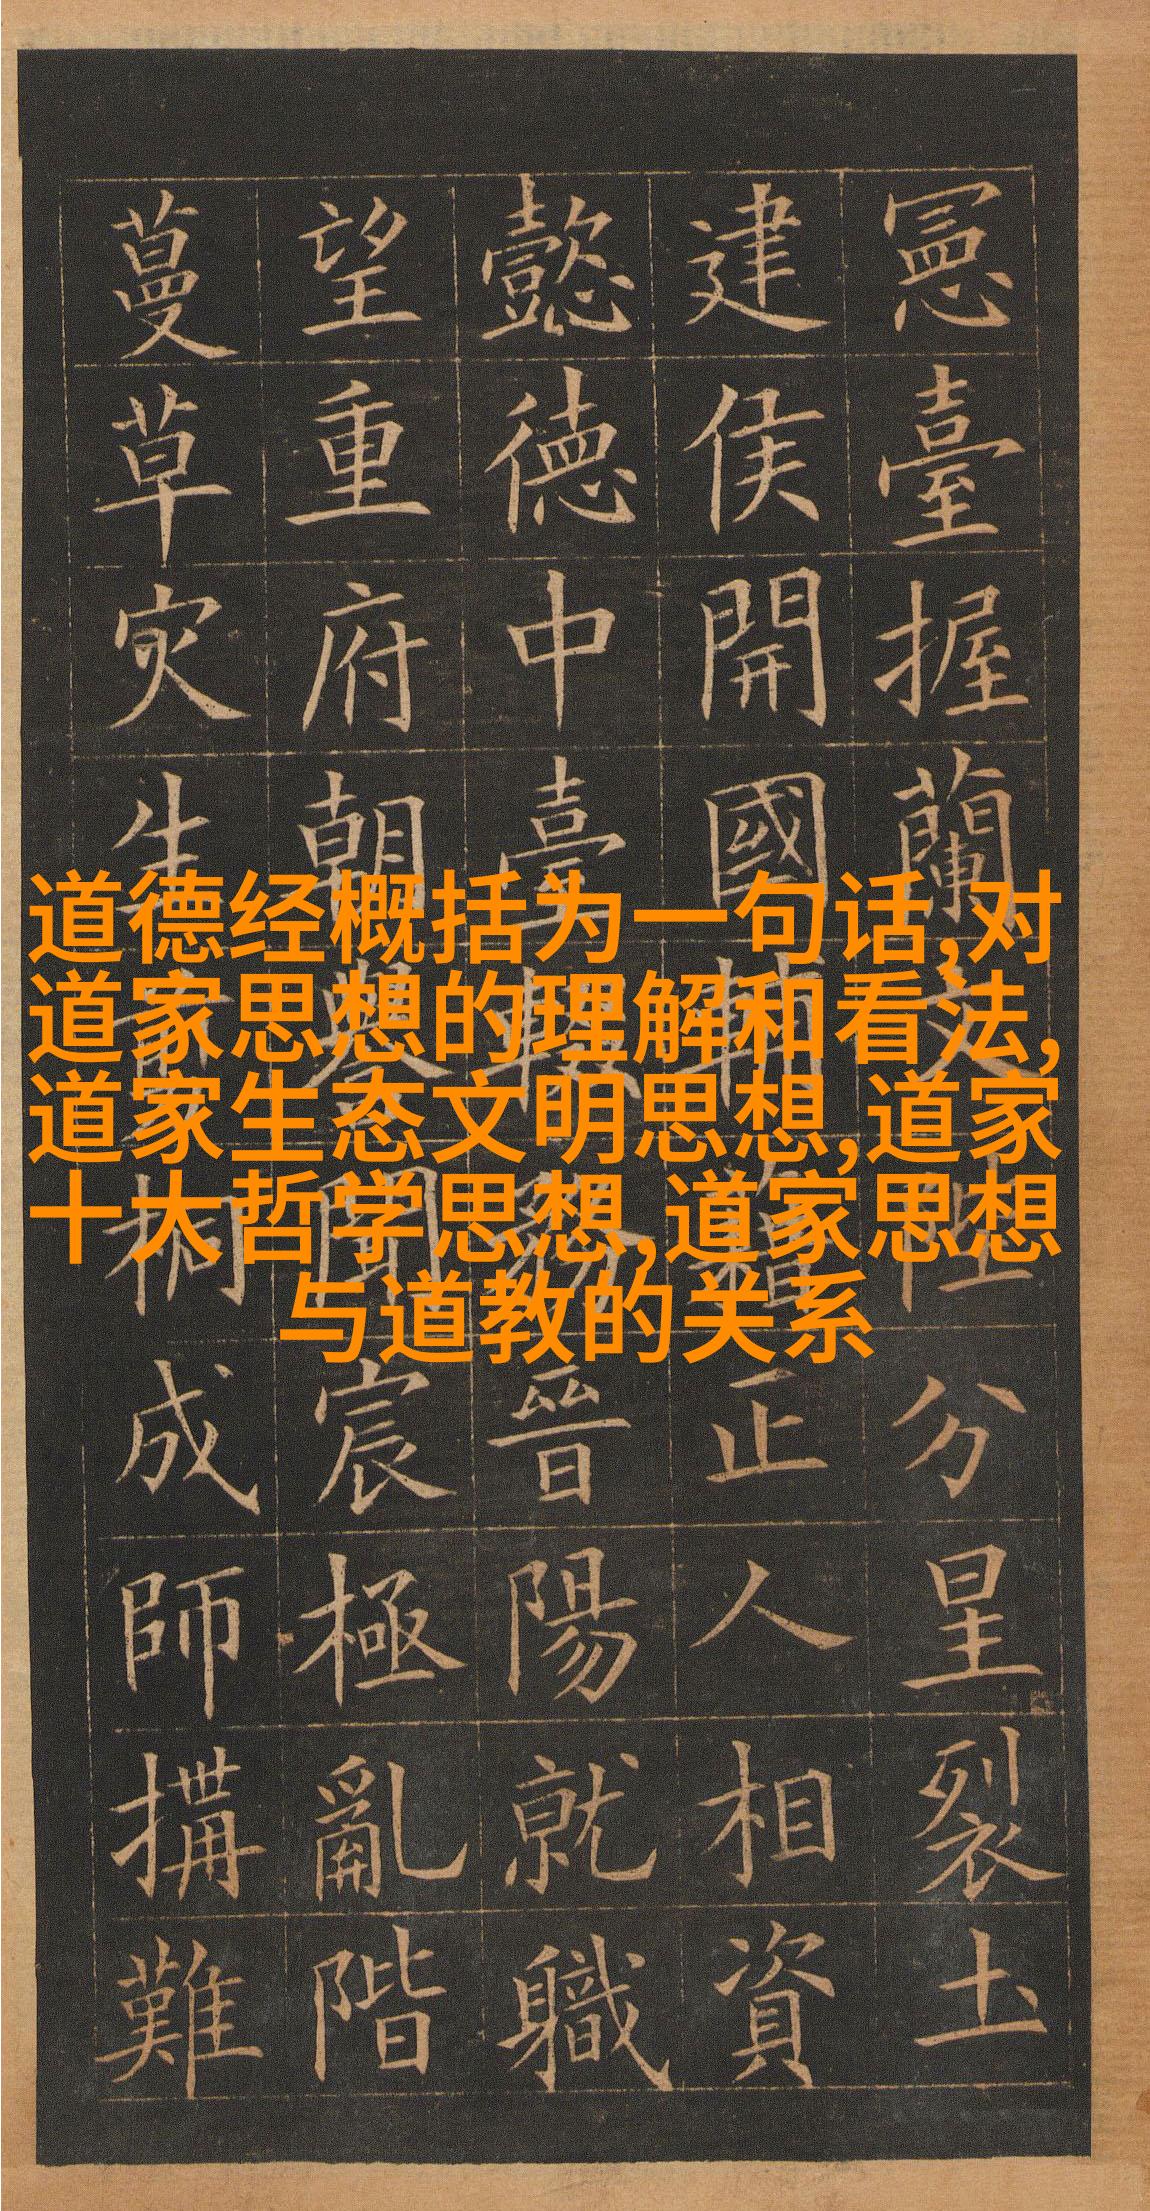 憲臺握蘭文陛分星裂土
建侯開國輔正人相資
懿德中臺輟務晉陽就職
望重府朝譽聞宸極亂階
蔓草灾生桐成師搆難
道德经概括为一句话,对
道家思想的理解和看法,
道家生态文明思想,道家
十大哲学思想,道家思想
与道教的关系